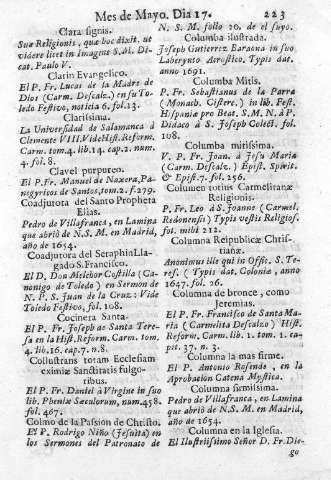 Mes de Mayo. Dia 17. 223
Clara signis.
Suæ Religionis, qua hoc dixit, ut
videre licet in Imagine S.M. Di-
cat. Paulo V.
Clarin Evangelico.
El P. Fr. Lucas de la Madre de
Dios (Carm. Descalz.) en su To-
ledo Festivo, noticia 6. fol. 13.
Clarissima.
La Universidad de Salamanca à
Clemente VIII. Vide Hist. Reform.
Carm. tom. 4. lib. 14. cap. 1. num.
4. fol. 8.
Clavel purpureo.
El P. Fr. Manuel de Naxera, Pa-
negyricos de Santos, tom. 2. f. 279.
Coadjutora del Santo Propheta
Elias.
Pedro de Villafranca, en Lamina
que abriò de N. S. M. en Madrid,
año de 1654.
Coadjutora del Seraphin Lla-
gado S. Francisco.
El D. Don Melchor Costilla (Ca-
nonigo de Toledo) en Sermon de
N. P. S. Juan de la Cruz: Vide
Toledo Festivo, fol. 108.
Cocinera Santa.
El P. Fr. Joseph de Santa Tere-
sa en la Hist. Reform. Carm. tom.
4. lib. 16. cap. 7. n. 8.
Collustrans totam Ecclesiam
eximiæ Sanctitatis fulgo-
ribus.
El P. Fr. Daniel à Virgine in suo
lib. Pheniæ Sæculorum, num. 458.
fol. 467.
Colmo de la Passion de Christo.
El P. Rodrigo Niño (Jesuita) en
los Sermones del Patronato de
N. S. M. folio 20. de el suyo.
Columba ilustrada.
Joseph Gutierrez Baraona in suo
Laberynto Acrostico, Typis dat.
anno 1691.
Columba Mitis.
P. Fr. Sebastianus de la Parra
(Monach. Cisterc.) in lib. Fest.
Hispaniæ pro Beat. S. M. N. à P.
Didaco à S. Joseph Colect. fol.
108.
Columba mitissima.
V. P. Fr. Joan. à Jesu Maria
(Carm. Descalz.) Epist. Spirit.
& Epist. 7. fol. 256.
Columen totius Carmelitanæ
Religionis.
P. Fr. Leo à S. Joanne (Carmel.
Redonensis) Typis vestis Religios.
fol. mihi 212.
Columna Reipublicæ Chris-
tianæ.
Anonimus ille qui in Offic. S. Te-
res. (Typis dat. Coloniæ, anno
1647. fol. 26.
Columna de bronce, como
Jeremias.
El P. Fr. Francisco de Santa Ma-
ria (Carmelita Descalzo) Hist.
Reform. Carm. lib. 1. tom. 1. ca-
pit. 37. n. 3.
Columna la mas firme.
El P. Antonio Rosende, en la
Aprobacion Catena Mystica.
Columna firmissima.
Pedro de Villafranca, en Lamina
que abriò de N. S. M. en Madrid,
año de 1654.
Columna en la Iglesia.
El Ilustrissimo Señor D. Fr. Die-
go